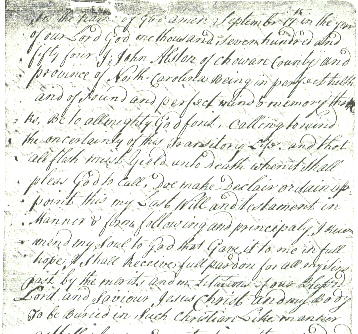 In the name of God amen September 17th in the year
of our Lord God one thousand seven hundred and
fifty four I, John Alston of Chowan County and
province of North Carolina being in perfect health
and of sound and perfect mind & memory thanks
be to allmighty God for it, calling to mind
the uncertainty of this transitory life, and that
all flesh must yield unto death when it shall
pleas God to call, doe make Declair
point this my Last Will and testament in
manner & form following and principaly I recom
mend my Soul to God that Gave it to me in full
hope I shall Receive full pardon for all my Sins
past by the merits and of our blessed
Lord and Saviour Jesus Christ and my body
to be buried in such Christian like manner